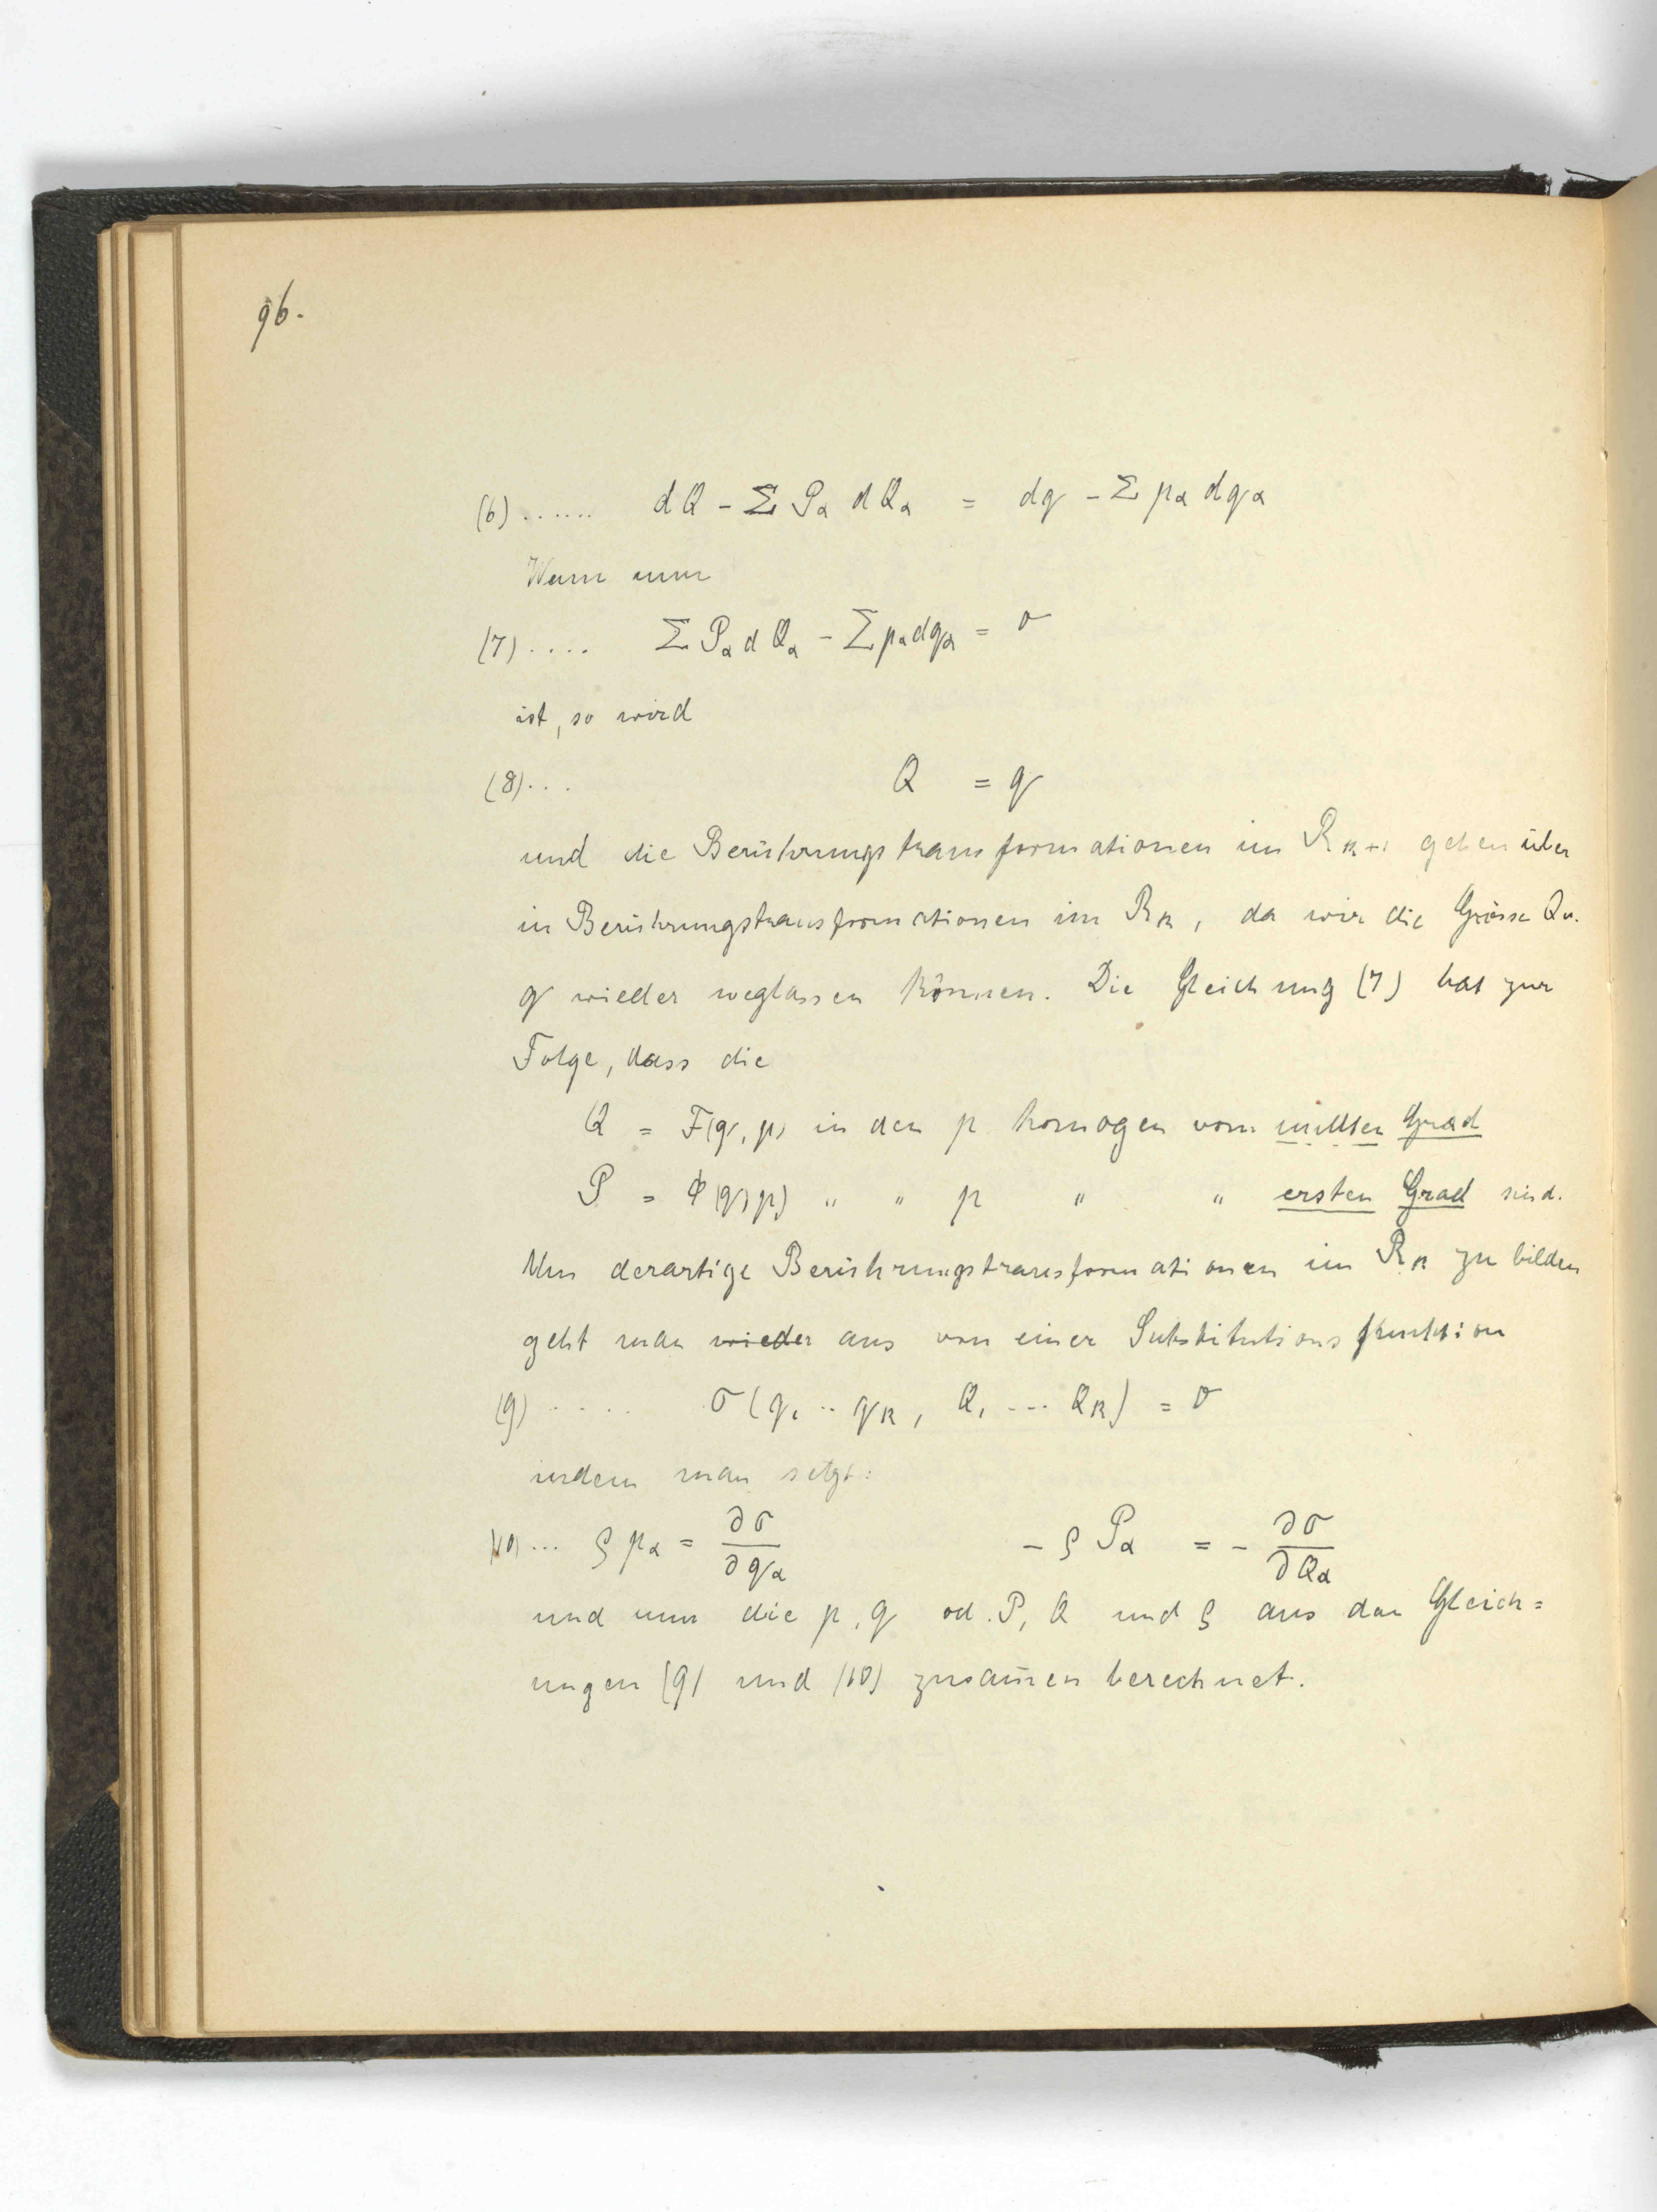 96.
(6) ...... dQ - Σ Pα dQα = dq - Σ pα dqα
Wenn nun
(7) .... Σ Pα dQα - Σ pα dqα = 0
ist, so wird
(8) ... Q = q
und die Berührungstransformationen im R_{k+1} gehen über
in Berührungstransformationen im R_k, da wir die Grösse Q u.
q wieder weglassen können. Die Gleichung (7) hat zur
Folge, dass die
Q = F(q, p) in den p homogen vom nullten Grad
P = Φ(q, p) " " p " " ersten Grad sind.
Um derartige Berührungstransformationen im R_k zu bilden
geht man wieder aus von einer Substitutionsfunktion
(9) ..... σ(q₁ .. q_k, Q₁ ... Q_k) = 0
indem man setzt:
(10) ... ρ pα = ∂σ/∂qα - ρ Pα = - ∂σ/∂Qα
und nun die p, q od. P, Q und ρ aus den Gleich=
ungen (9) und (10) zusam̄en berechnet.